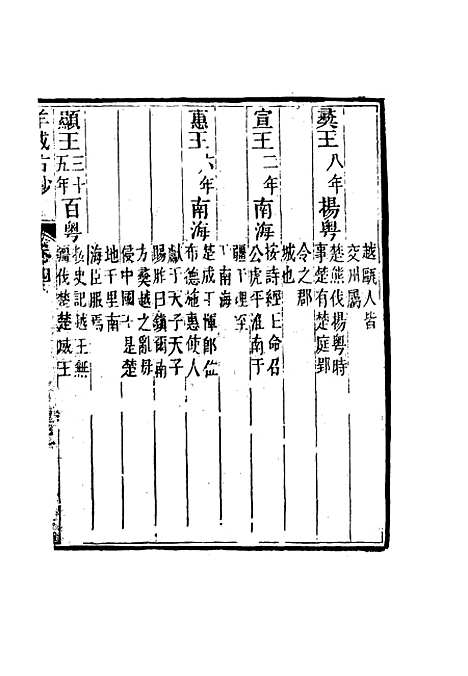 越甌人皆
交州屬
夷王八年揚粤
楚熊伐揚粤時
事楚有楚庭郢
令之郡
城也
宣王二年南海
按詩經王命召
公虎平淮南于
疆于理至
于南海
惠王六年南海
楚成王惲郎位
布德施惠使人
獻于天子天子
賜胙曰鎮爾南
方夷越之亂毋
侵中國于是楚
地千里南
海臣服焉
顯王三十五年百粤
按史記越王無
疆伐楚楚威王
羊城古鈔